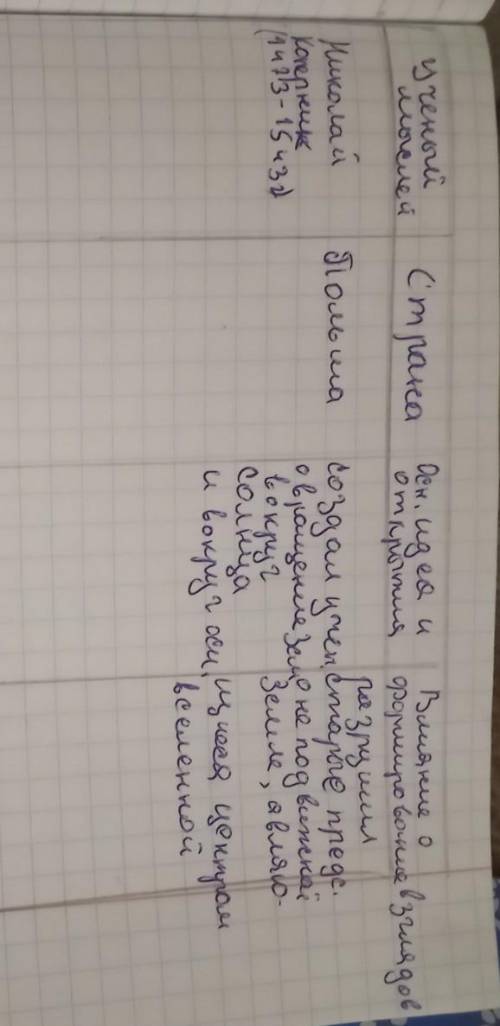 Ученый
мыслей
Страна
Осн. идея и
открытия
Влияние о
формирование взглядов
Николай
Коперник
(1473-1543г)
Польша
создал учен.
о вращение Зем
вокруг
солнца
и вокруг оси.
разрушил
старые предс.
о не подвижной
Земле, являю-
щиеся центром
вселенной